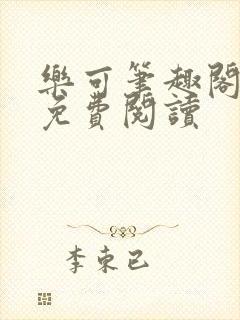 樂可筆趣閣
免費閱讀
李束已